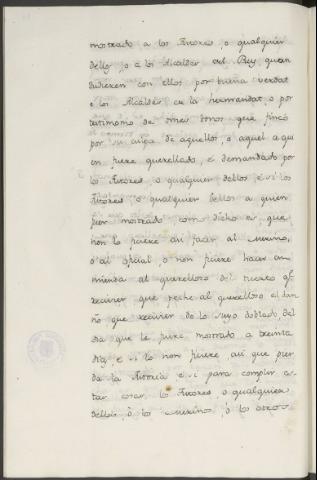 mostrado a los Tutores, o qualquier
dello, o a los Alcaldes del Rey quan
dudieren con ellos por buena verdat
e los Alcaldes en la hermandat o por
testimonio de omes bonos que fincó
por su de aquellos, o aquel a qui
en fuere querellado, é demandado por
los Tutores o qualquier dellos é si los
Tutores o qualquier dellos a quien
fuer mostrado como dicho es, que
non lo ficiere asi facer al Merino,
o al oficial o non ficiere hacer en
mienda al querelloso del
reciviere que peche al querelloso el dan
ño que reciviere de lo suyo doblado del
dia que le fuere mostrado a treinta
dias e si lo non ficiere asi que pier
da la Tutoria e si para complir es
tas cosas los Tutores o qualquiera
dellos ó los Merinos ó los otros